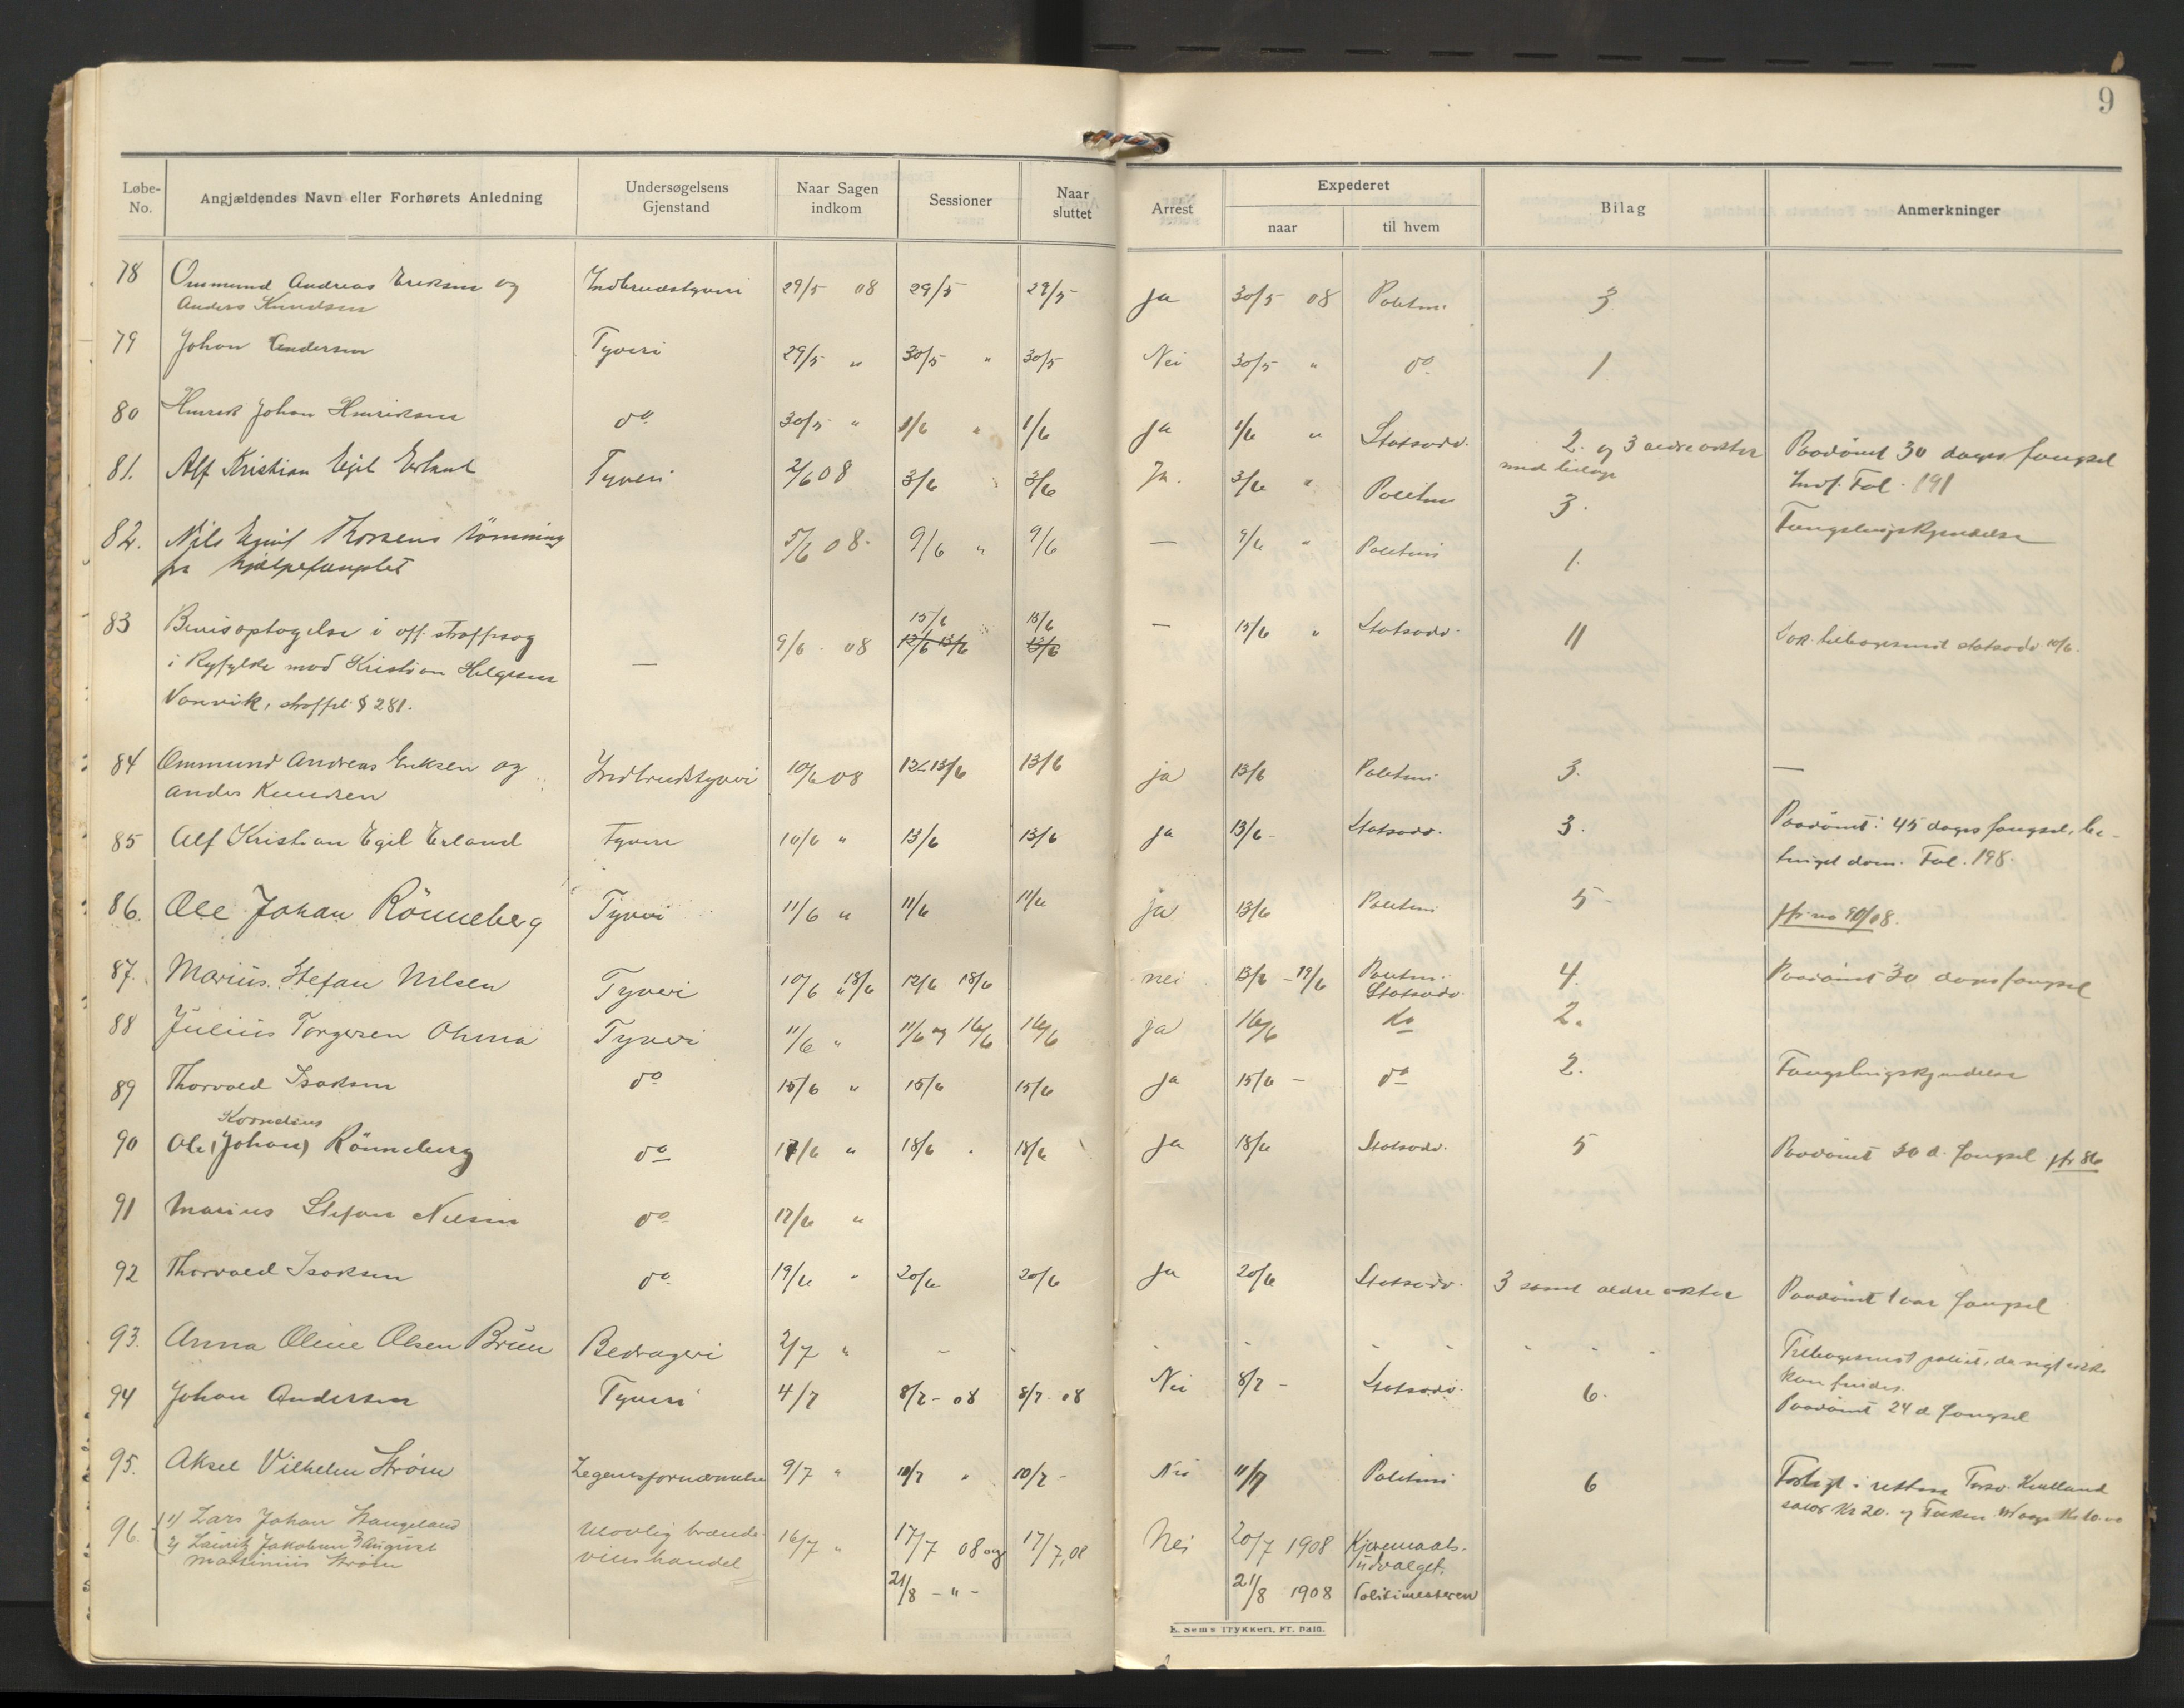 9
Løbe-No. Angjældendes Navn eller Forhørets Anledning Undersøgelsens Gjenstand Naar Sagen indkom Sessioner Naar sluttet Arrest Expederet naar til hvem Bilag Anmerkninger
78 Ommund Andreas Eriksen og Indbrudstyveri 29/5 08 29/5 29/5 Ja 30/5 08 Politm. 3
Anders Knudsen
79 Johan Andersen Tyveri 29/5 " 30/5 " 30/5 Nei 30/5 " do 1
80 Henrik Johan Henriksen do 30/5 " 1/6 " 1/6 Ja 1/6 " Statsadv. 2. og 3 ældre akter Paadömt 30 dages fængsel
med bilage Indf. Fol. 191
81. Alf Kristian Egil Erland Tyveri 2/6 08 3/6 3/6 Ja. 3/6 " Politm 3. Fængslingskjendelse
82. Nils Emil Thorsens römning 5/6 08. 9/6 " 9/6 — 9/6 " Politm 1.
fra hjælpefængslet
83 Bevisoptagelse i off. straffesag — 9/6 08 15/6 15/6 — 15/6 " Statsadv. 11 Dok. tilbagesendt statsadv 10/6.
i Ryfylke mod Kristian Helgesen 12/6 13/6 13/6
Vanvik, straffel. § 281.
84 Ommund Andreas Eriksen og Indbrudstyveri 10/6 08 12 13/6 13/6 ja 13/6 Politm 3. —
Anders Knudsen
85 Alf Kristian Egil Erland Tyveri 10/6 " 13/6 13/6 Ja 13/6 - Statsadv. 3. Paadömt: 45 dages fængsel, be-
tinget dom. Fol. 198.
86. Ole Johan Rönneberg Tyveri 11/6 " 11/6 11/6 ja 13/6 Politm 5 - jfr. no 90/08.
87. Marius Stefan Nilsen Tyveri 10/6 " 18/6 12/6 18/6 nei 13/6 - 19/6 Politm. Statsadv. 4. Paadömt 30 dages fængsel
88 Julius Torgersen Ohma Tyveri 11/6 " 11/6 og 16/6 16/6 ja 16/6 do 2.
89 Thorvald Isaksen do 15/6 " 15/6 15/6 Ja 15/6 - do 2. Fængslingskjendelse
Kornelius
90 Ole (Johan) Rönneberg do 17/6 " 18/6 . 18/6 Ja 18/6 Statsadv. 5 Paadömt 30 d. fængsel jfr 86
91 Marius Stefan Nilsen do 17/6 "
92 Thorvald Isaksen do 19/6 " 20/6 20/6 Ja 20/6 Statsadv. 3 samt ældre akter Paadömt 1 aar fængsel
93. Anna Oline Olsen Brün Bedrageri 2/7 " - - - - - - Tilbagesendt politiet, da sigt. ikke
kan findes.
94 Johan Andersen Tyveri 4/7 8/7 - 08 8/7 - 08 Nei 8/7 - Statsadv. 6. Paadömt 24 d. fængsel
95. Aksel Vilhelm Strøm Legemsfornærmelse 9/7 " 10/7 " 10/7 - Nei 11/7 Politm 6 Forligt i retten
96. 1) Lars Johan Stangeland Ulovlig brænde- 16/7 " 17/7 08 og 17/7, 08 Nei 20/7 1908 Kjæremaals-
2) Lauritz Jakobsen 3) August vinshandel udvalget.
Martinius Strøm 21/8 - " - 21/8 1908 Politimesteren
E. Sems Trykkeri, Fr. hald.